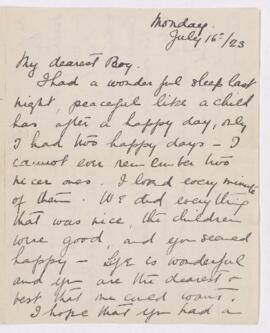 Monday.
July 16th/23
My dearest Boy.
I had a wonderful sleep last
night, peaceful like a child
has after a happy day, only
I had two happy days - I
cannot ever remember two
nicer ones. I loved every minute
of them. We did everything
that was nice, the children
were good, and you seemed
happy - Life is wonderful
and you are the dearest &
best that one could want.
I hope that you had a